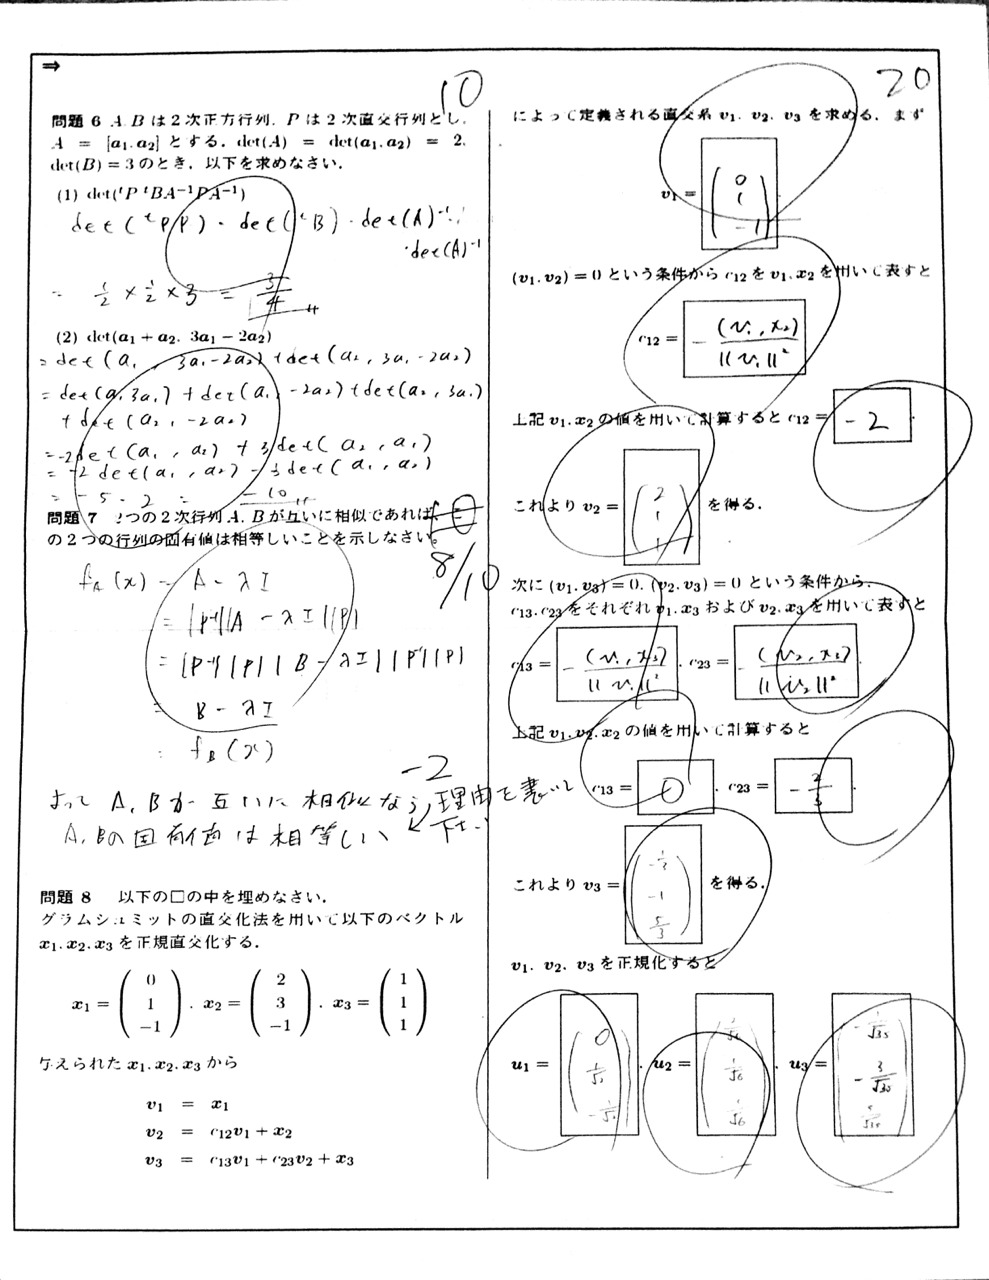 ⇒
10
問題 6 A, B は2次正方行列, P は2次直交行列とし,
A = [a1, a2] とする. det(A) = det(a1, a2) = 2,
det(B) = 3 のとき, 以下を求めなさい.
(1) det(ᵗP ᵗBA⁻¹PA⁻¹)
det(ᵗPP)・det(ᵗB)・det(A)⁻¹
・det(A)⁻¹
= 1/2 × 1/2 × 3 = 3/4
(2) det(a1 + a2, 3a1 − 2a2)
= det(a1, 3a1 − 2a2) + det(a2, 3a1 − 2a2)
= det(a1, 3a1) + det(a1, −2a2) + det(a2, 3a1)
+ det(a2, −2a2)
= −2det(a1, a2) + 3det(a2, a1)
= −2det(a1, a2) − 3det(a1, a2)
= −5・2 = −10
問題 7 2つの2次行列 A, B が互いに相似であれば, こ
の2つの行列の固有値は相等しいことを示しなさい。
8/10
fA(x) = A − λI
= |P⁻¹||A − λI||P|
= |P⁻¹||P||B − λI||P⁻¹||P|
= B − λI
= fB(x)
−2
よって A, Bが 互いに 相似なら 理由を書いて
A, Bの固有値は相等しい 下さい
問題 8 以下の□の中を埋めなさい.
グラムシュミットの直交化法を用いて以下のベクトル
x1, x2, x3 を正規直交化する.
x1 = (0 1 −1), x2 = (2 3 −1), x3 = (1 1 1)
与えられた x1, x2, x3 から
v1 = x1
v2 = c12v1 + x2
v3 = c13v1 + c23v2 + x3
20
によって定義される直交系 v1, v2, v3 を求める. まず
v1 = (0 1 −1)
(v1, v2) = 0 という条件から c12 を v1, x2 を用いて表すと
c12 = −(v1, x2)/||v1||²
上記 v1, x2 の値を用いて計算すると c12 = −2
これより v2 = (2 1 1) を得る.
次に (v1, v3) = 0, (v2, v3) = 0 という条件から,
c13, c23 をそれぞれ v1, x3 および v2, x3 を用いて表すと
c13 = −(v1, x3)/||v1||², c23 = −(v2, x3)/||v2||²
上記 v1, v2, x2 の値を用いて計算すると
c13 = 0, c23 = −2/3
これより v3 = を得る.
v1, v2, v3 を正規化すると
u1 = , u2 = , u3 =